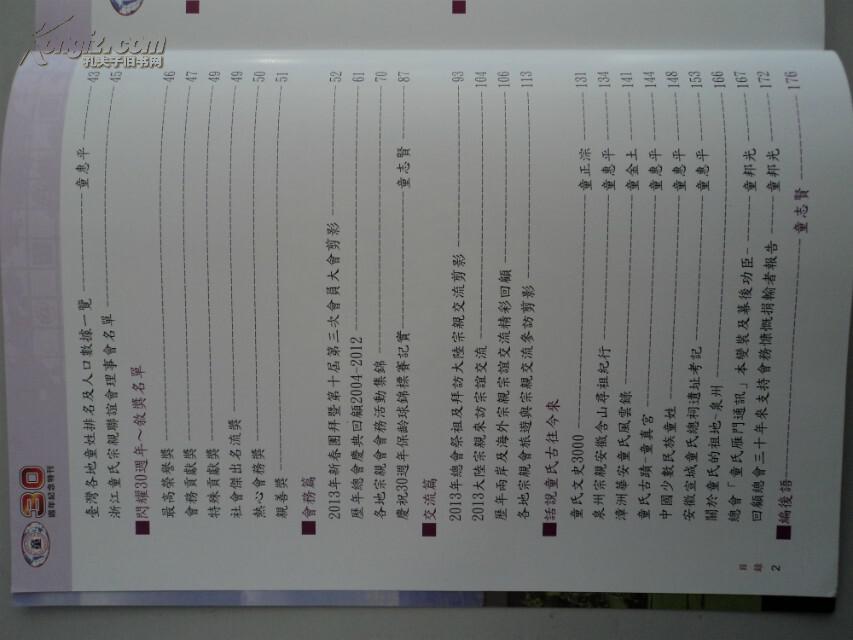 30
週年紀念特刊
臺灣各地童姓排名及人口數據一覽 童惠平 43
浙江童氏宗親聯誼會理事會名單 45
■閃耀30週年~敘獎名單
最高榮譽獎 46
會務貢獻獎 47
特殊貢獻獎 49
社會傑出名流獎 49
熱心會務獎 50
親善獎 51
■會務篇
2013年新春團拜暨第十屆第三次會員大會剪影 52
歷年總會慶典回顧2004-2012 61
各地宗親會會務活動集錦 70
慶祝30週年保齡球錦標賽記實 童志賢 87
■交流篇
2013年總會祭祖及拜訪大陸宗親交流剪影 93
2013大陸宗親來訪宗誼交流 104
歷年兩岸及海外宗親宗誼交流精彩回顧 106
各地宗親會旅遊與宗親交流參訪剪影 113
■話說童氏古往今來
童氏文史3000 童正淙 131
泉州宗親安徽含山尋祖紀行 童惠平 134
漳洲華安童氏風雲錄 童金土 141
童氏古蹟-童真宮 童惠平 144
中國少數民族童姓 童惠平 148
安徽宣城童氏總祠遺址考記 童惠平 153
關於童氏的祖地-泉州 166
總會「童氏雁門通訊」本變裝及幕後功臣 童邦光 167
回顧總會三十年來支持會務慷慨捐輸者報告 童邦光 172
■編後語 童志賢 176
目錄
2
Kongfz.com
孔夫子旧书网